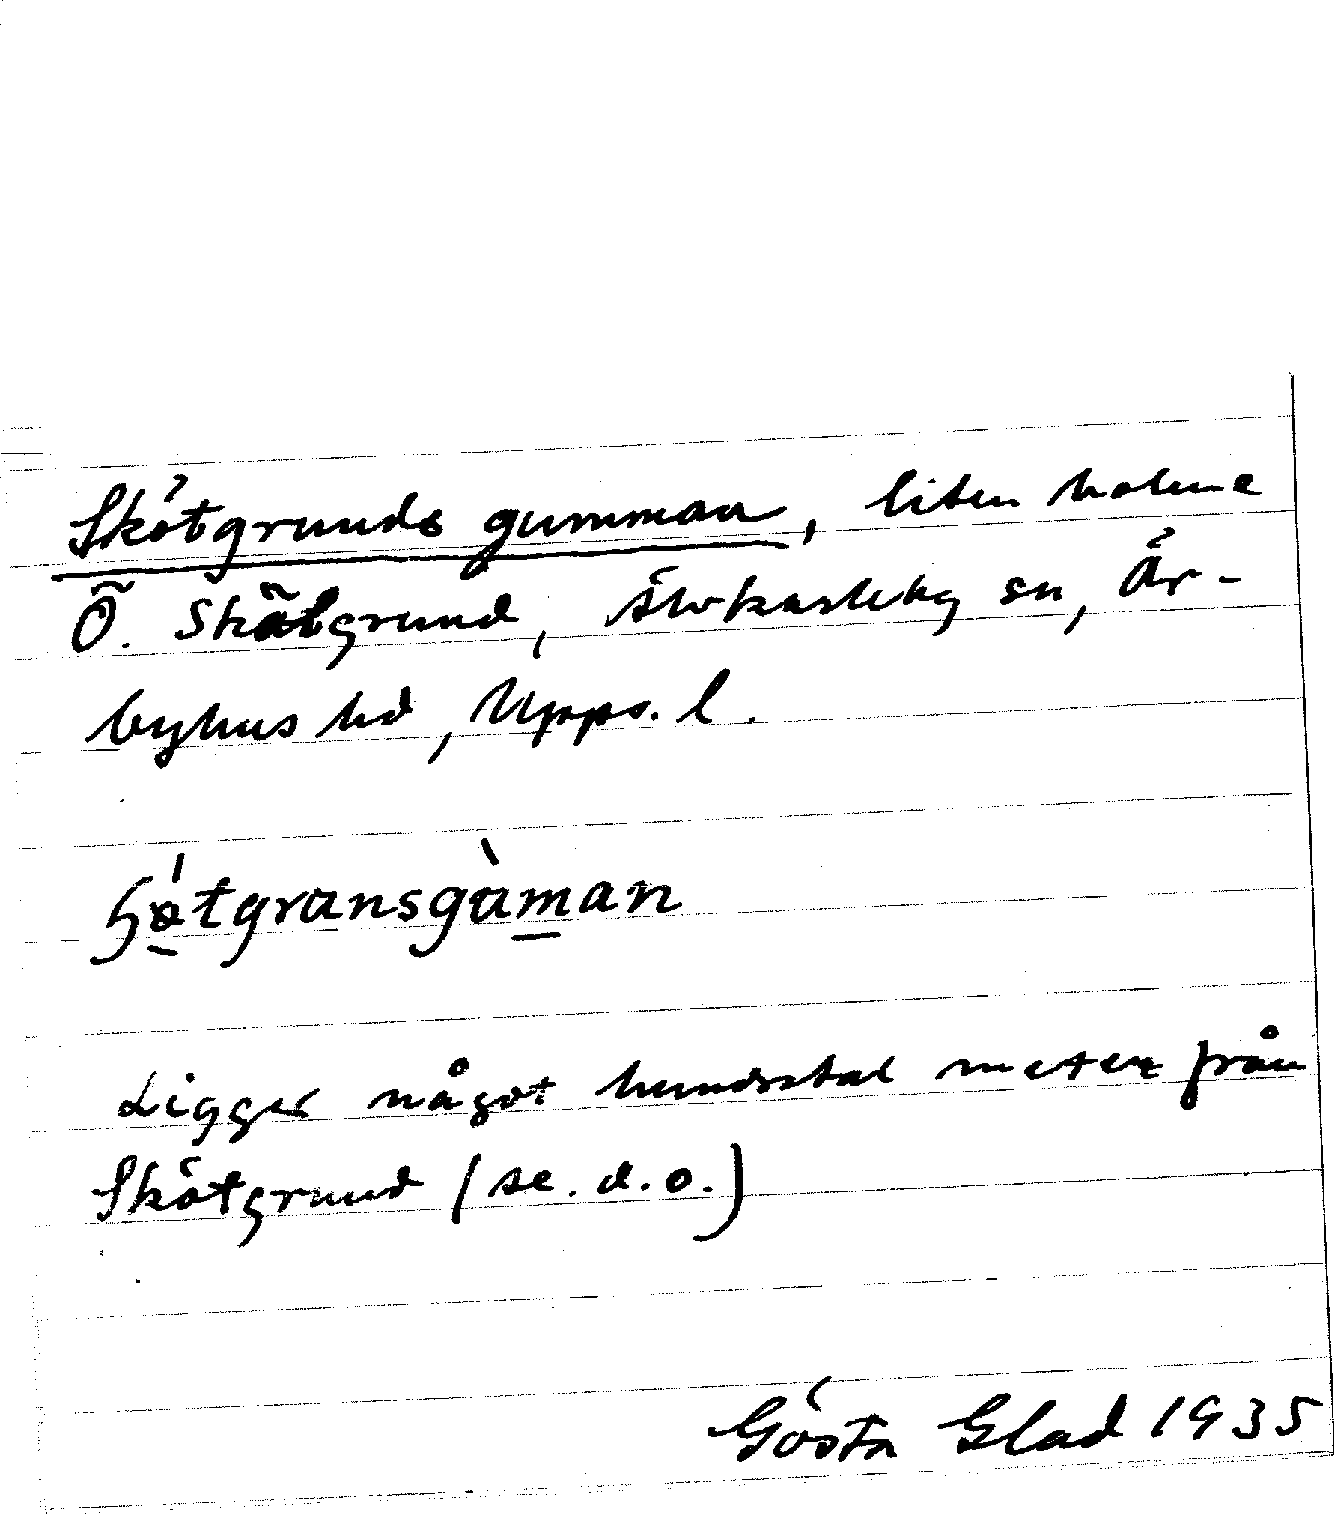 Skötgrunds gumman, liten holme
Ö. Skötgrund, Älvkarleby sn, Ör-
byhus hd, Upps. l.
Ligger något hundratal meter från
Skötgrund (se. d.o.)
Gösta Glad 1935